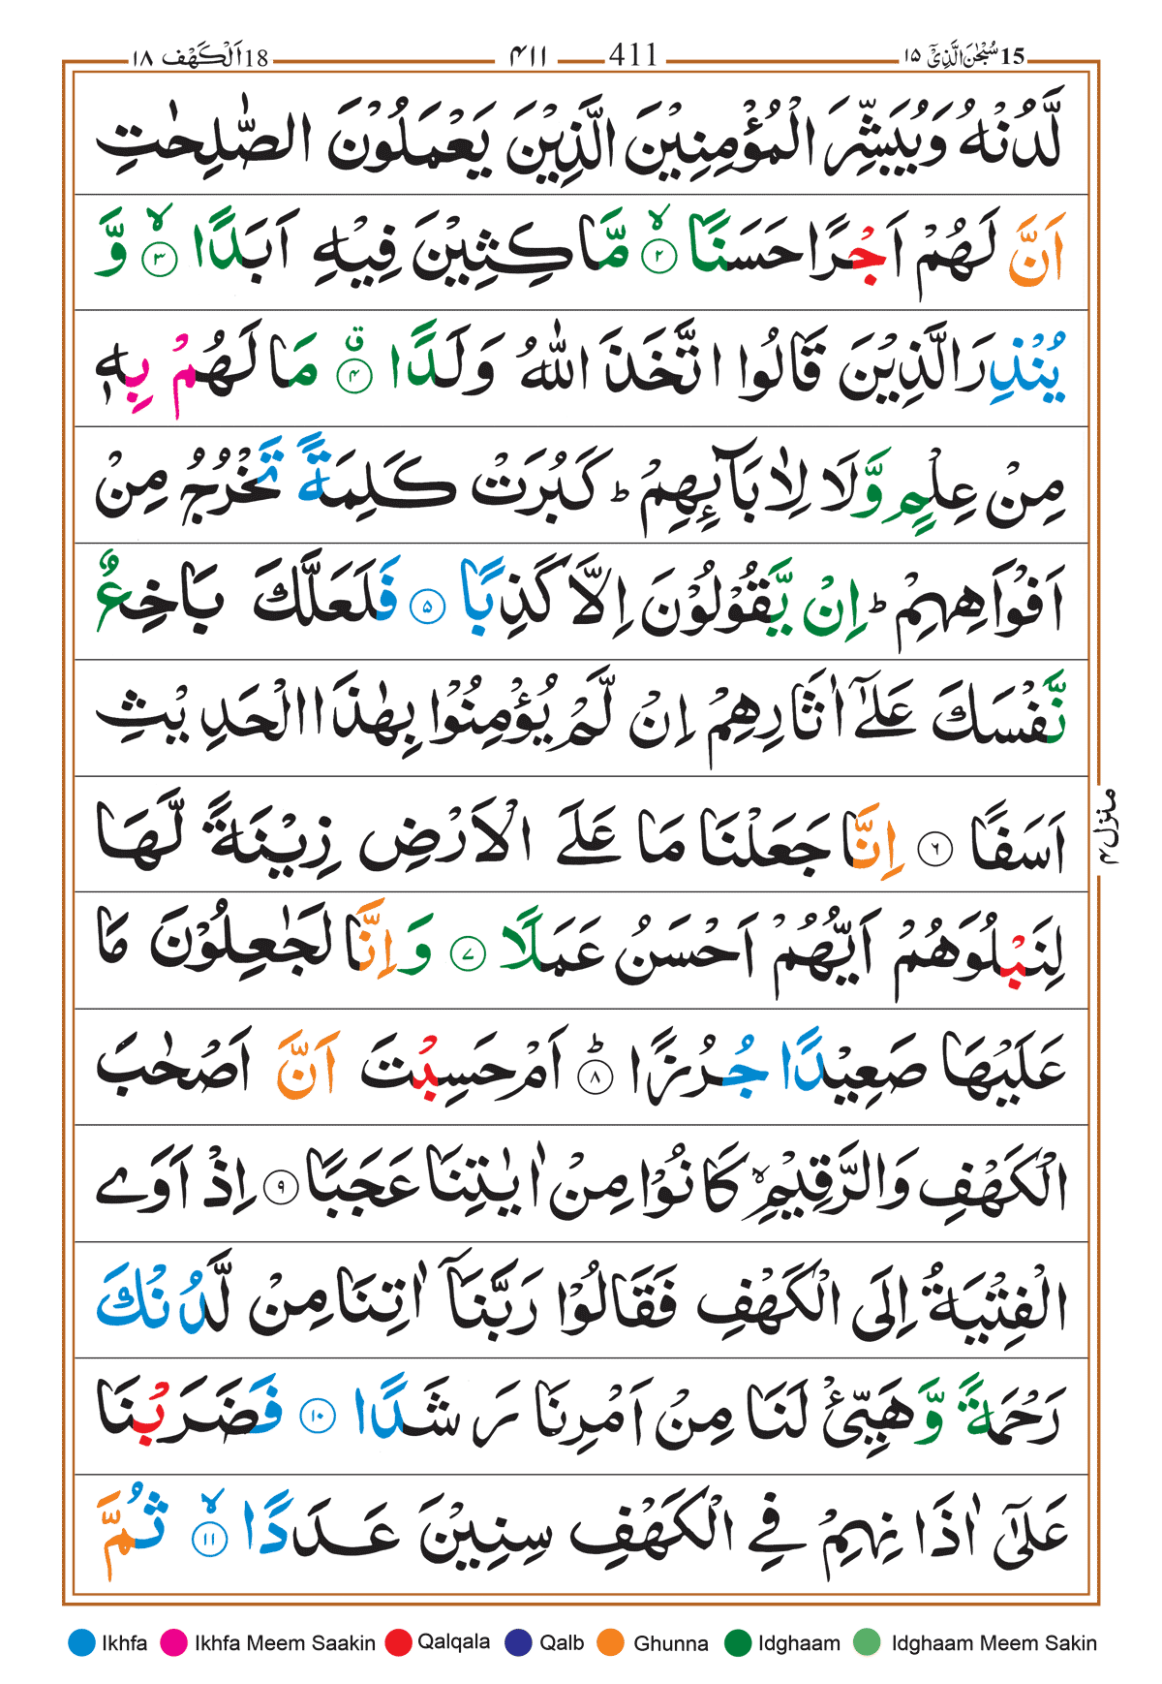 18 اَلْكَهْف ١٨ ٤١١ 411 15 سُبْحٰنَ الَّذِیْۤ ١٥
لَّدُنْهُ وَیُبَشِّرَ الْمُؤْمِنِیْنَ الَّذِیْنَ یَعْمَلُوْنَ الصّٰلِحٰتِ
اَنَّ لَهُمْ اَجْرًا حَسَنًا ۙ﴿۲﴾ مَّاكِثِیْنَ فِیْهِ اَبَدًا ۙ﴿۳﴾ وَّ
یُنْذِرَ الَّذِیْنَ قَالُوا اتَّخَذَ اللّٰهُ وَلَدًا ۗ﴿۴﴾ مَا لَهُمْ بِهٖ
مِنْ عِلْمٍ وَّلَا لِاٰبَآئِهِمْ ؕ كَبُرَتْ كَلِمَةً تَخْرُجُ مِنْ
اَفْوَاهِهِمْ ؕ اِنْ یَّقُوْلُوْنَ اِلَّا كَذِبًا ﴿۵﴾ فَلَعَلَّكَ بَاخِعٌ
نَّفْسَكَ عَلٰۤی اٰثَارِهِمْ اِنْ لَّمْ یُؤْمِنُوْا بِهٰذَا الْحَدِیْثِ
اَسَفًا ﴿۶﴾ اِنَّا جَعَلْنَا مَا عَلَی الْاَرْضِ زِیْنَةً لَّهَا
لِنَبْلُوَهُمْ اَیُّهُمْ اَحْسَنُ عَمَلًا ﴿۷﴾ وَاِنَّا لَجٰعِلُوْنَ مَا
عَلَیْهَا صَعِیْدًا جُرُزًا ؕ﴿۸﴾ اَمْ حَسِبْتَ اَنَّ اَصْحٰبَ
الْكَهْفِ وَالرَّقِیْمِ ۙ كَانُوْا مِنْ اٰیٰتِنَا عَجَبًا ﴿۹﴾ اِذْ اَوَی
الْفِتْیَةُ اِلَی الْكَهْفِ فَقَالُوْا رَبَّنَاۤ اٰتِنَا مِنْ لَّدُنْكَ
رَحْمَةً وَّهَیِّئْ لَنَا مِنْ اَمْرِنَا رَشَدًا ﴿۱۰﴾ فَضَرَبْنَا
عَلٰۤی اٰذَانِهِمْ فِی الْكَهْفِ سِنِیْنَ عَدَدًا ۙ﴿۱۱﴾ ثُمَّ
منزل ۴
Ikhfa Ikhfa Meem Saakin Qalqala Qalb Ghunna Idghaam Idghaam Meem Sakin